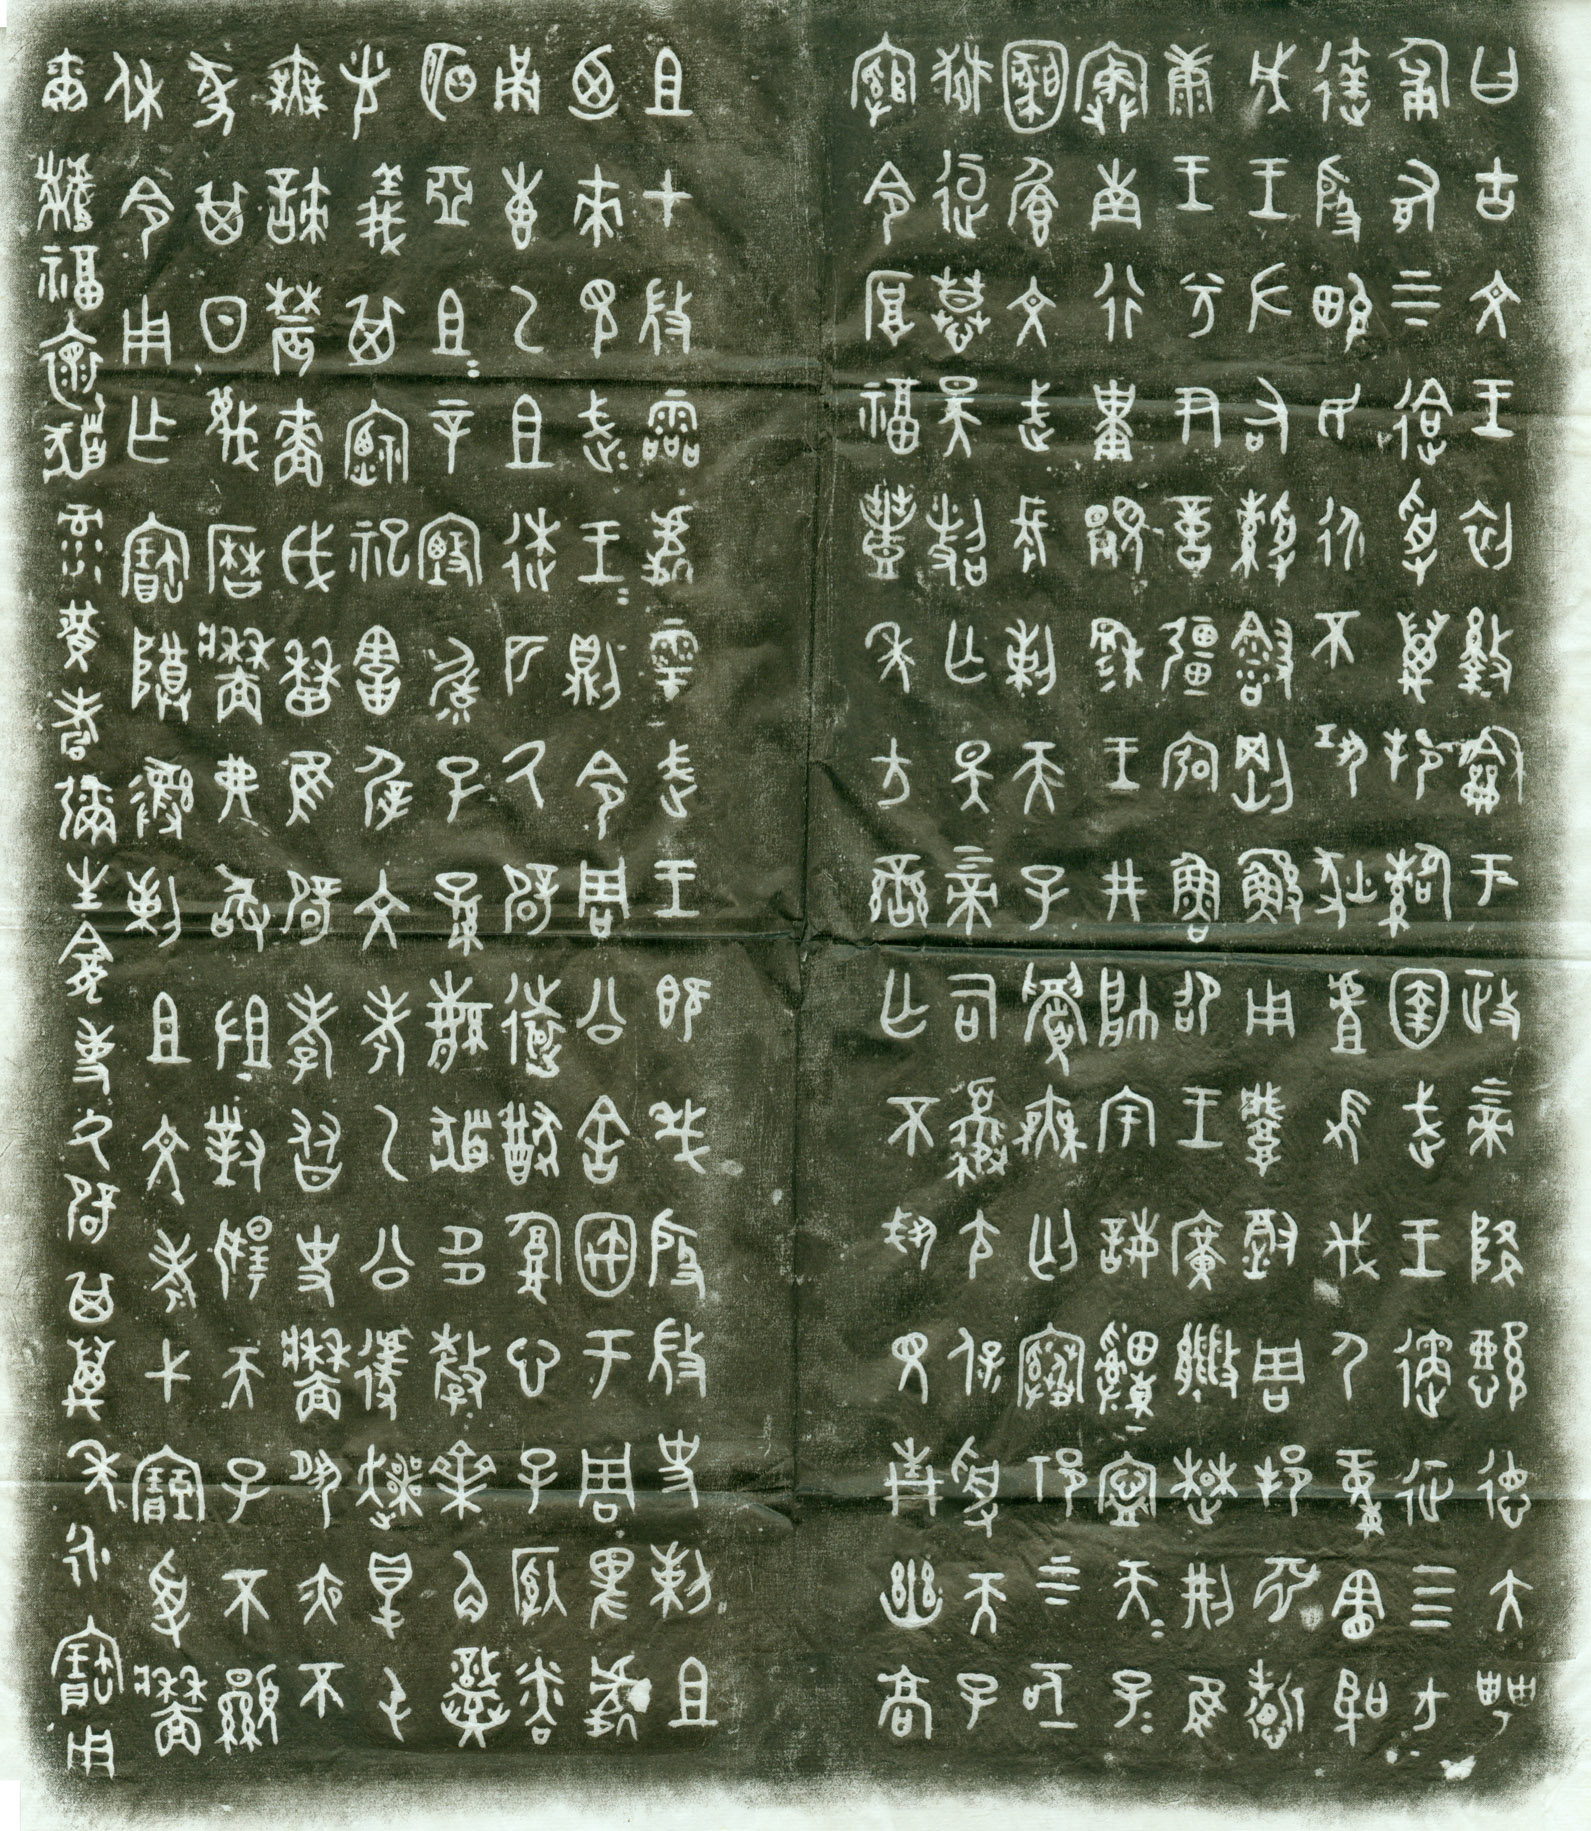 曰古文王初𢿛龢于政上帝降懿德大甹
匍有上下迨受萬邦𩁹圉武王遹征四方
達殷畯民永不巩狄虘𡵂伐尸童憲聖
成王左右綬𩒨剛鯀用肇徹周邦淵哲
康王兮尹億疆宏魯卲王廣能楚荊隹
寏南行祗覭穆王井帥宇誨䌛寧天子天子
𪫃𩞑文武長剌天子眉無匄𧶠祁上下亟
𤞷𧻚慕昊照亡斁上帝司夒尢保受天子
綰令厚福豐年方蠻亡不𢦚見青幽高
且才𢼸霝處雩武王既𢦏殷𢼸史剌且
迺來見武王武王則令周公舍㝢于周卑處
甬叀乙且逨匹氒辟遠猷腹心子納粦
明亞且且辛甄毓子孫繁祓多釐齊角熾
光義其禋祀舒遲文考乙公遽爽得屯
無諫農嗇戉曆隹辟孝友史牆夙夜不
彖其日蔑曆牆弗敢沮對揚天子不顯
休令用乍寶尊彝剌且文考弋寶受牆
爾黹福懷祓彔黃耇彌生龕事氒辟其萬年永寶用